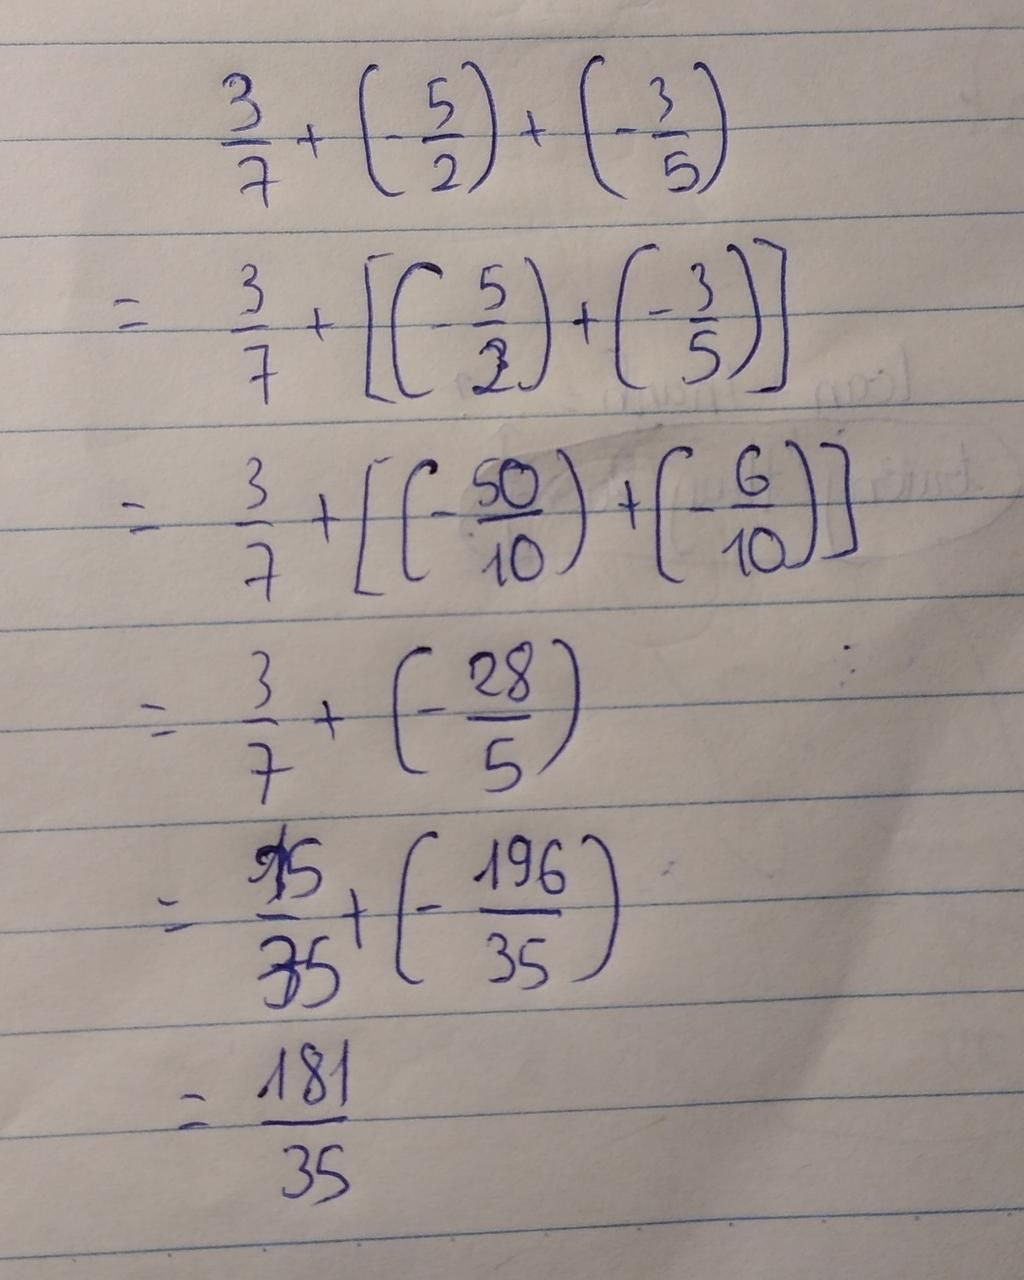 3/7 + (-5/2) + (-3/5)
= 3/7 + [(-5/2) + (-3/5)]
= 3/7 + [(-50/10) + (-6/10)]
= 3/7 + (-28/5)
= 15/35 + (-196/35)
= 181/35